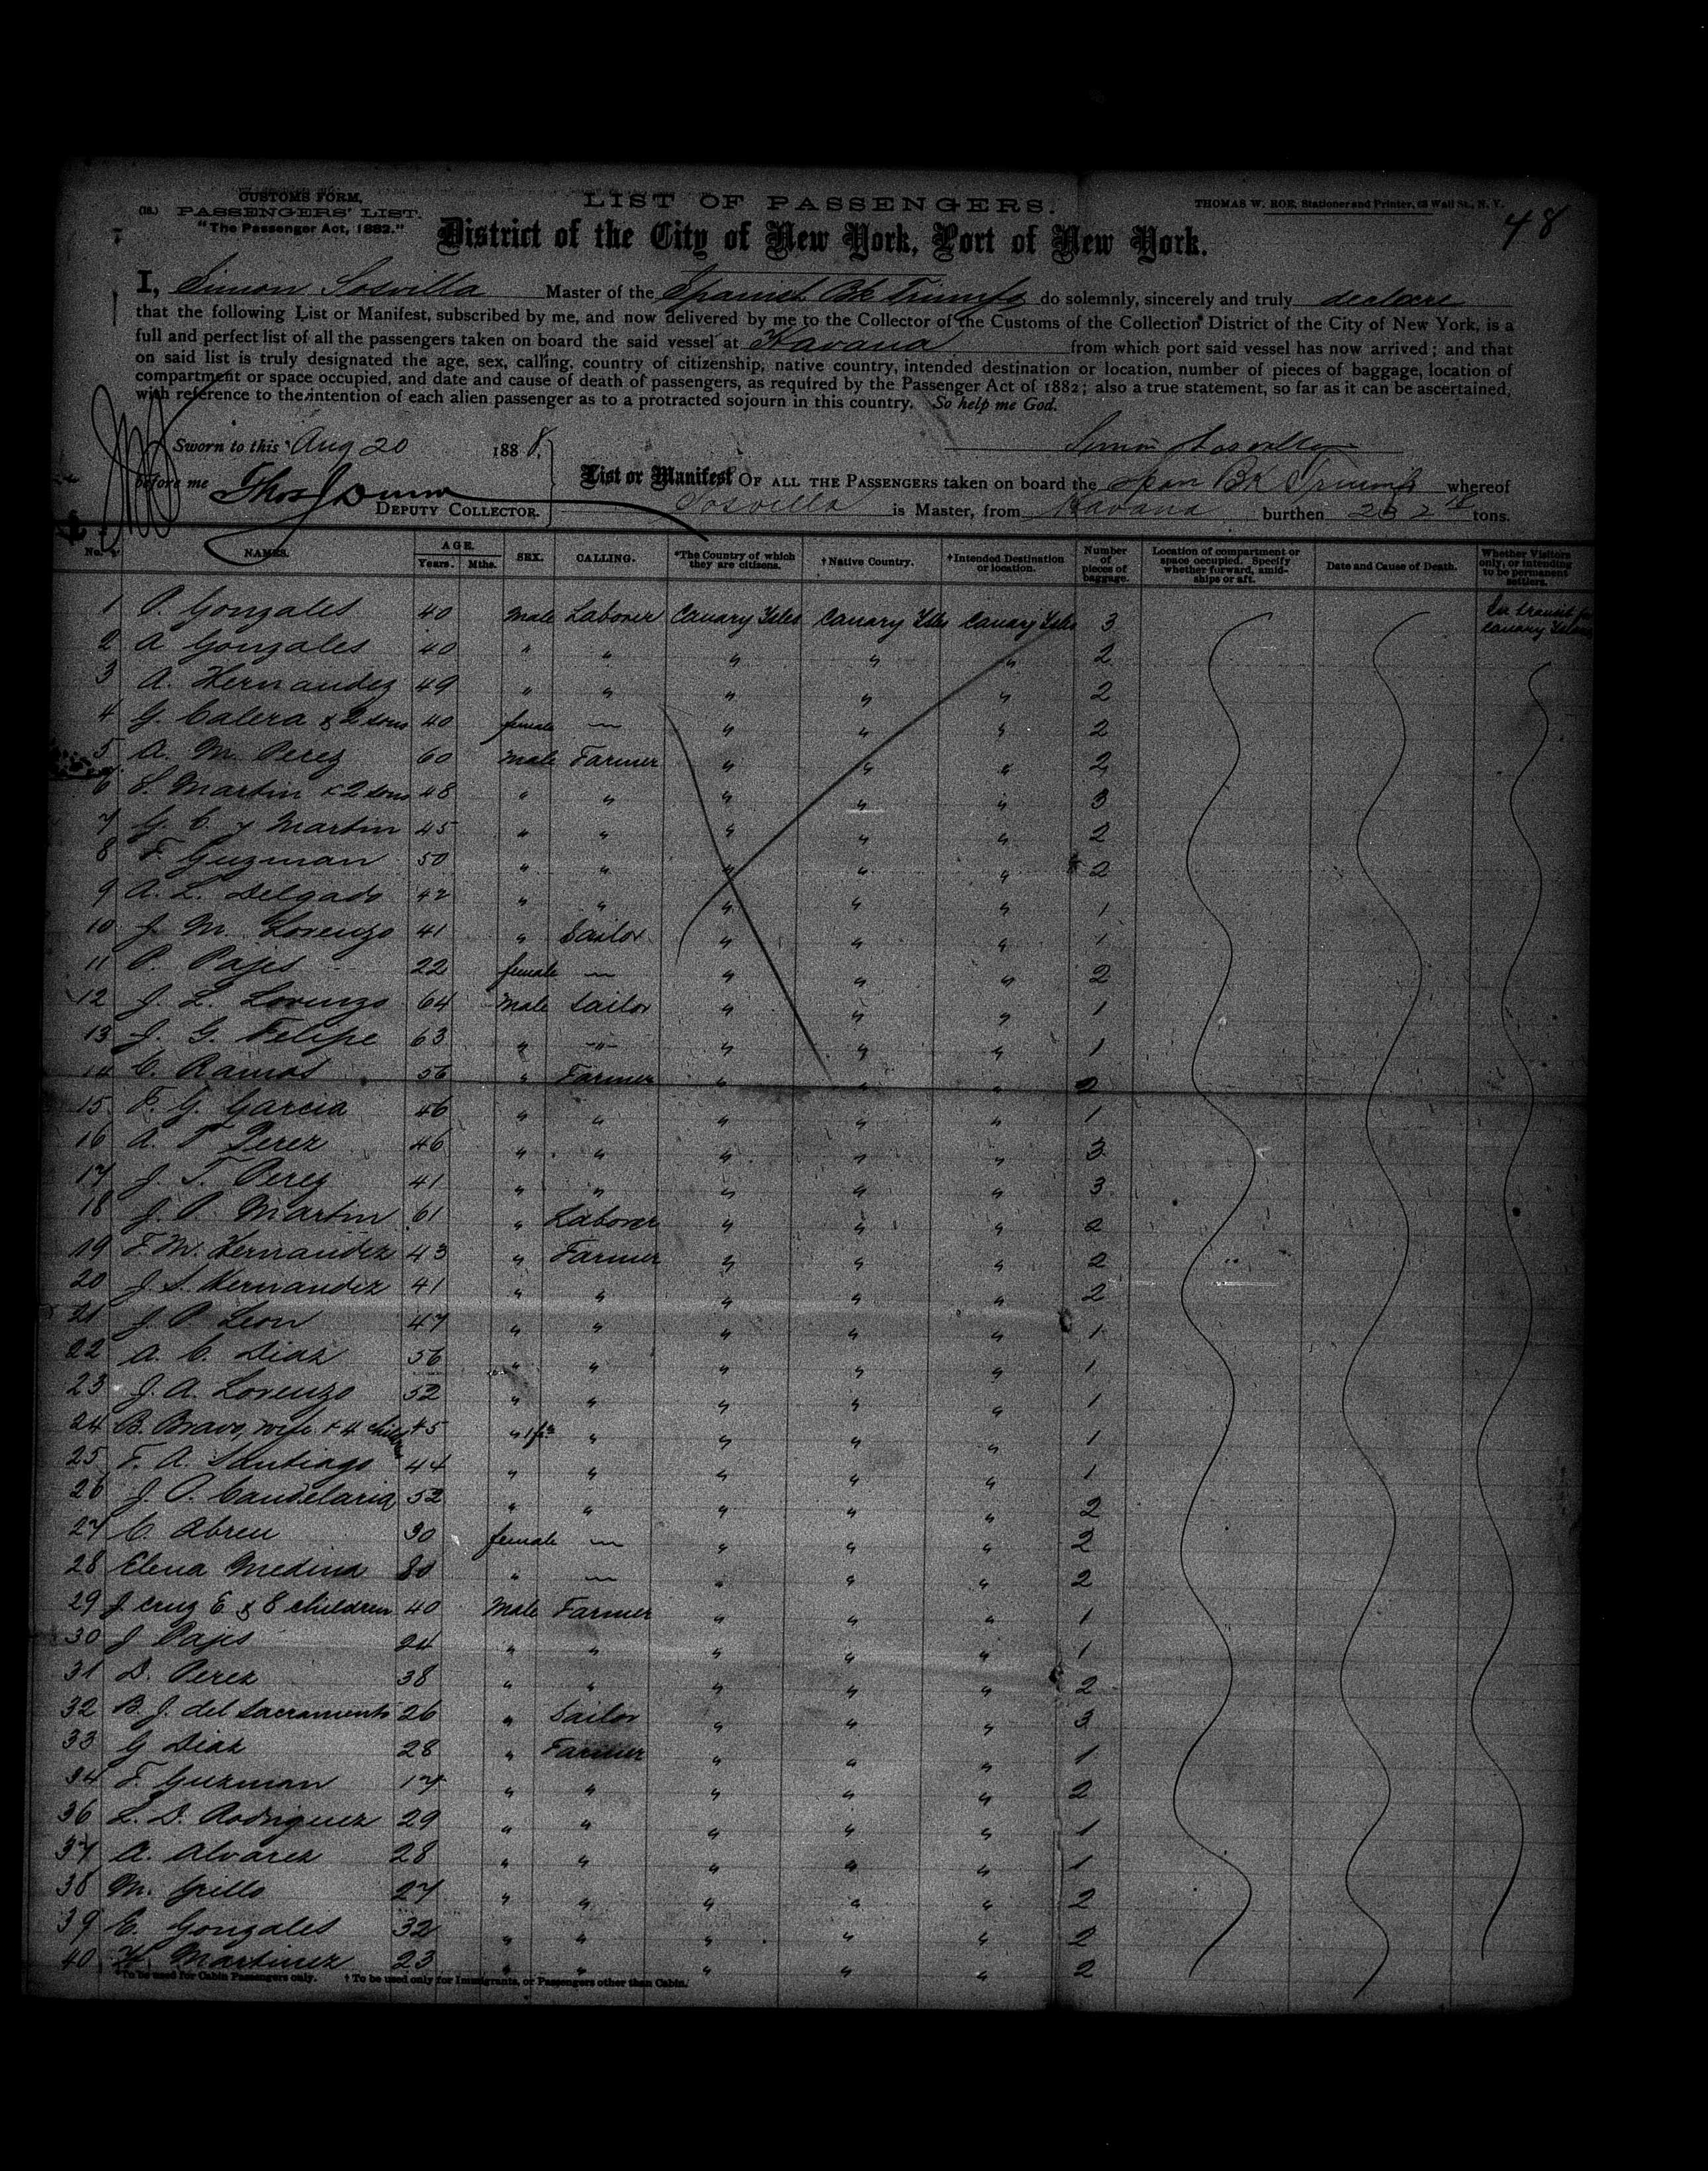 CUSTOMS FORM,
(18.) PASSENGERS' LIST.
"The Passenger Act, 1882."
LIST OF PASSENGERS.
THOMAS W. ROE, Stationer and Printer, 63 Wall St., N. Y.
48
District of the City of New York, Port of New York.
I, Simon Sosvilla Master of the Spanish Bk Triumfo do solemnly, sincerely and truly declare
that the following List or Manifest, subscribed by me, and now delivered by me to the Collector of the Customs of the Collection District of the City of New York, is a
full and perfect list of all the passengers taken on board the said vessel at Havana from which port said vessel has now arrived; and that
on said list is truly designated the age, sex, calling, country of citizenship, native country, intended destination or location, number of pieces of baggage, location of
compartment or space occupied, and date and cause of death of passengers, as required by the Passenger Act of 1882; also a true statement, so far as it can be ascertained,
with reference to the intention of each alien passenger as to a protracted sojourn in this country. So help me God.
Sworn to this Aug 20 1888,
Simon Sosvilla
before me Thos J Dunn
DEPUTY COLLECTOR.
List or Manifest OF ALL THE PASSENGERS taken on board the Span Bk Triumfo whereof
Sosvilla is Master, from Havana burthen 232 tons.
No. NAMES. AGE. Years. Mths. SEX. CALLING. *The Country of which they are citizens. †Native Country. †Intended Destination or location. Number of pieces of baggage. Location of compartment or space occupied. Specify whether forward, amidships or aft. Date and Cause of Death. Whether Visitors only, or intending to be permanent settlers.
1 P. Gonzales 40 Male Laborer Canary Isles Canary Isles Canary Isles 3 In transit for Canary Islands
2 A Gonzales 40 " " " " " 2
3 A. Hernandez 49 " " " " " 2
4 G. Calera & 2 sons 40 female — " " " 2
5 A. M. Perez 60 Male Farmer " " " 2
6 S. Martin & 2 sons 48 " " " " " 3
7 G. C. y Martin 45 " " " " " 2
8 F. Guzman 50 " " " " " 2
9 A. L. Delgado 42 " " " " " 1
10 J. M. Lorenzo 41 " Sailor " " " 1
11 P. Pajes 22 female — " " " 2
12 J. L. Lorenzo 64 Male Sailor " " " 1
13 J. G. Felipe 63 " " " " " 1
14 C. Ramos 56 " Farmer " " " 2
15 F. G. Garcia 46 " " " " " 1
16 A. P Perez 46 " " " " " 3
17 J. T. Perez 41 " " " " " 3
18 J. P. Martin 61 " Laborer " " " 2
19 F. M. Hernandez 43 " Farmer " " " 2
20 J. S. Hernandez 41 " " " " " 2
21 J. P. Leon 47 " " " " " 1
22 A. C. Diaz 56 " " " " " 1
23 J. A. Lorenzo 52 " " " " " 1
24 B. Bravo, wife & 4 children 45 " " " " " 1
25 F. A. Santiago 44 " " " " " 1
26 J. P. Candelaria 52 " " " " " 2
27 C. Abreu 30 female — " " " 2
28 Elena Medina 80 " — " " " 2
29 J. Cruz E & 8 children 40 Male Farmer " " " 1
30 J Pajes 24 " " " " " 1
31 D. Perez 38 " " " " " 2
32 B. J. del Sacramento 26 " Sailor " " " 3
33 G Diaz 28 " Farmer " " " 1
34 F. Guzman 17 " " " " " 2
36 L. D. Rodriguez 29 " " " " " 1
37 A. Alvarez 28 " " " " " 1
38 M. Grillo 27 " " " " " 2
39 E. Gonzales 32 " " " " " 2
40 Martinez 23 " " " " " 2
*To be used for Cabin Passengers only. †To be used only for Immigrants, or Passengers other than Cabin.